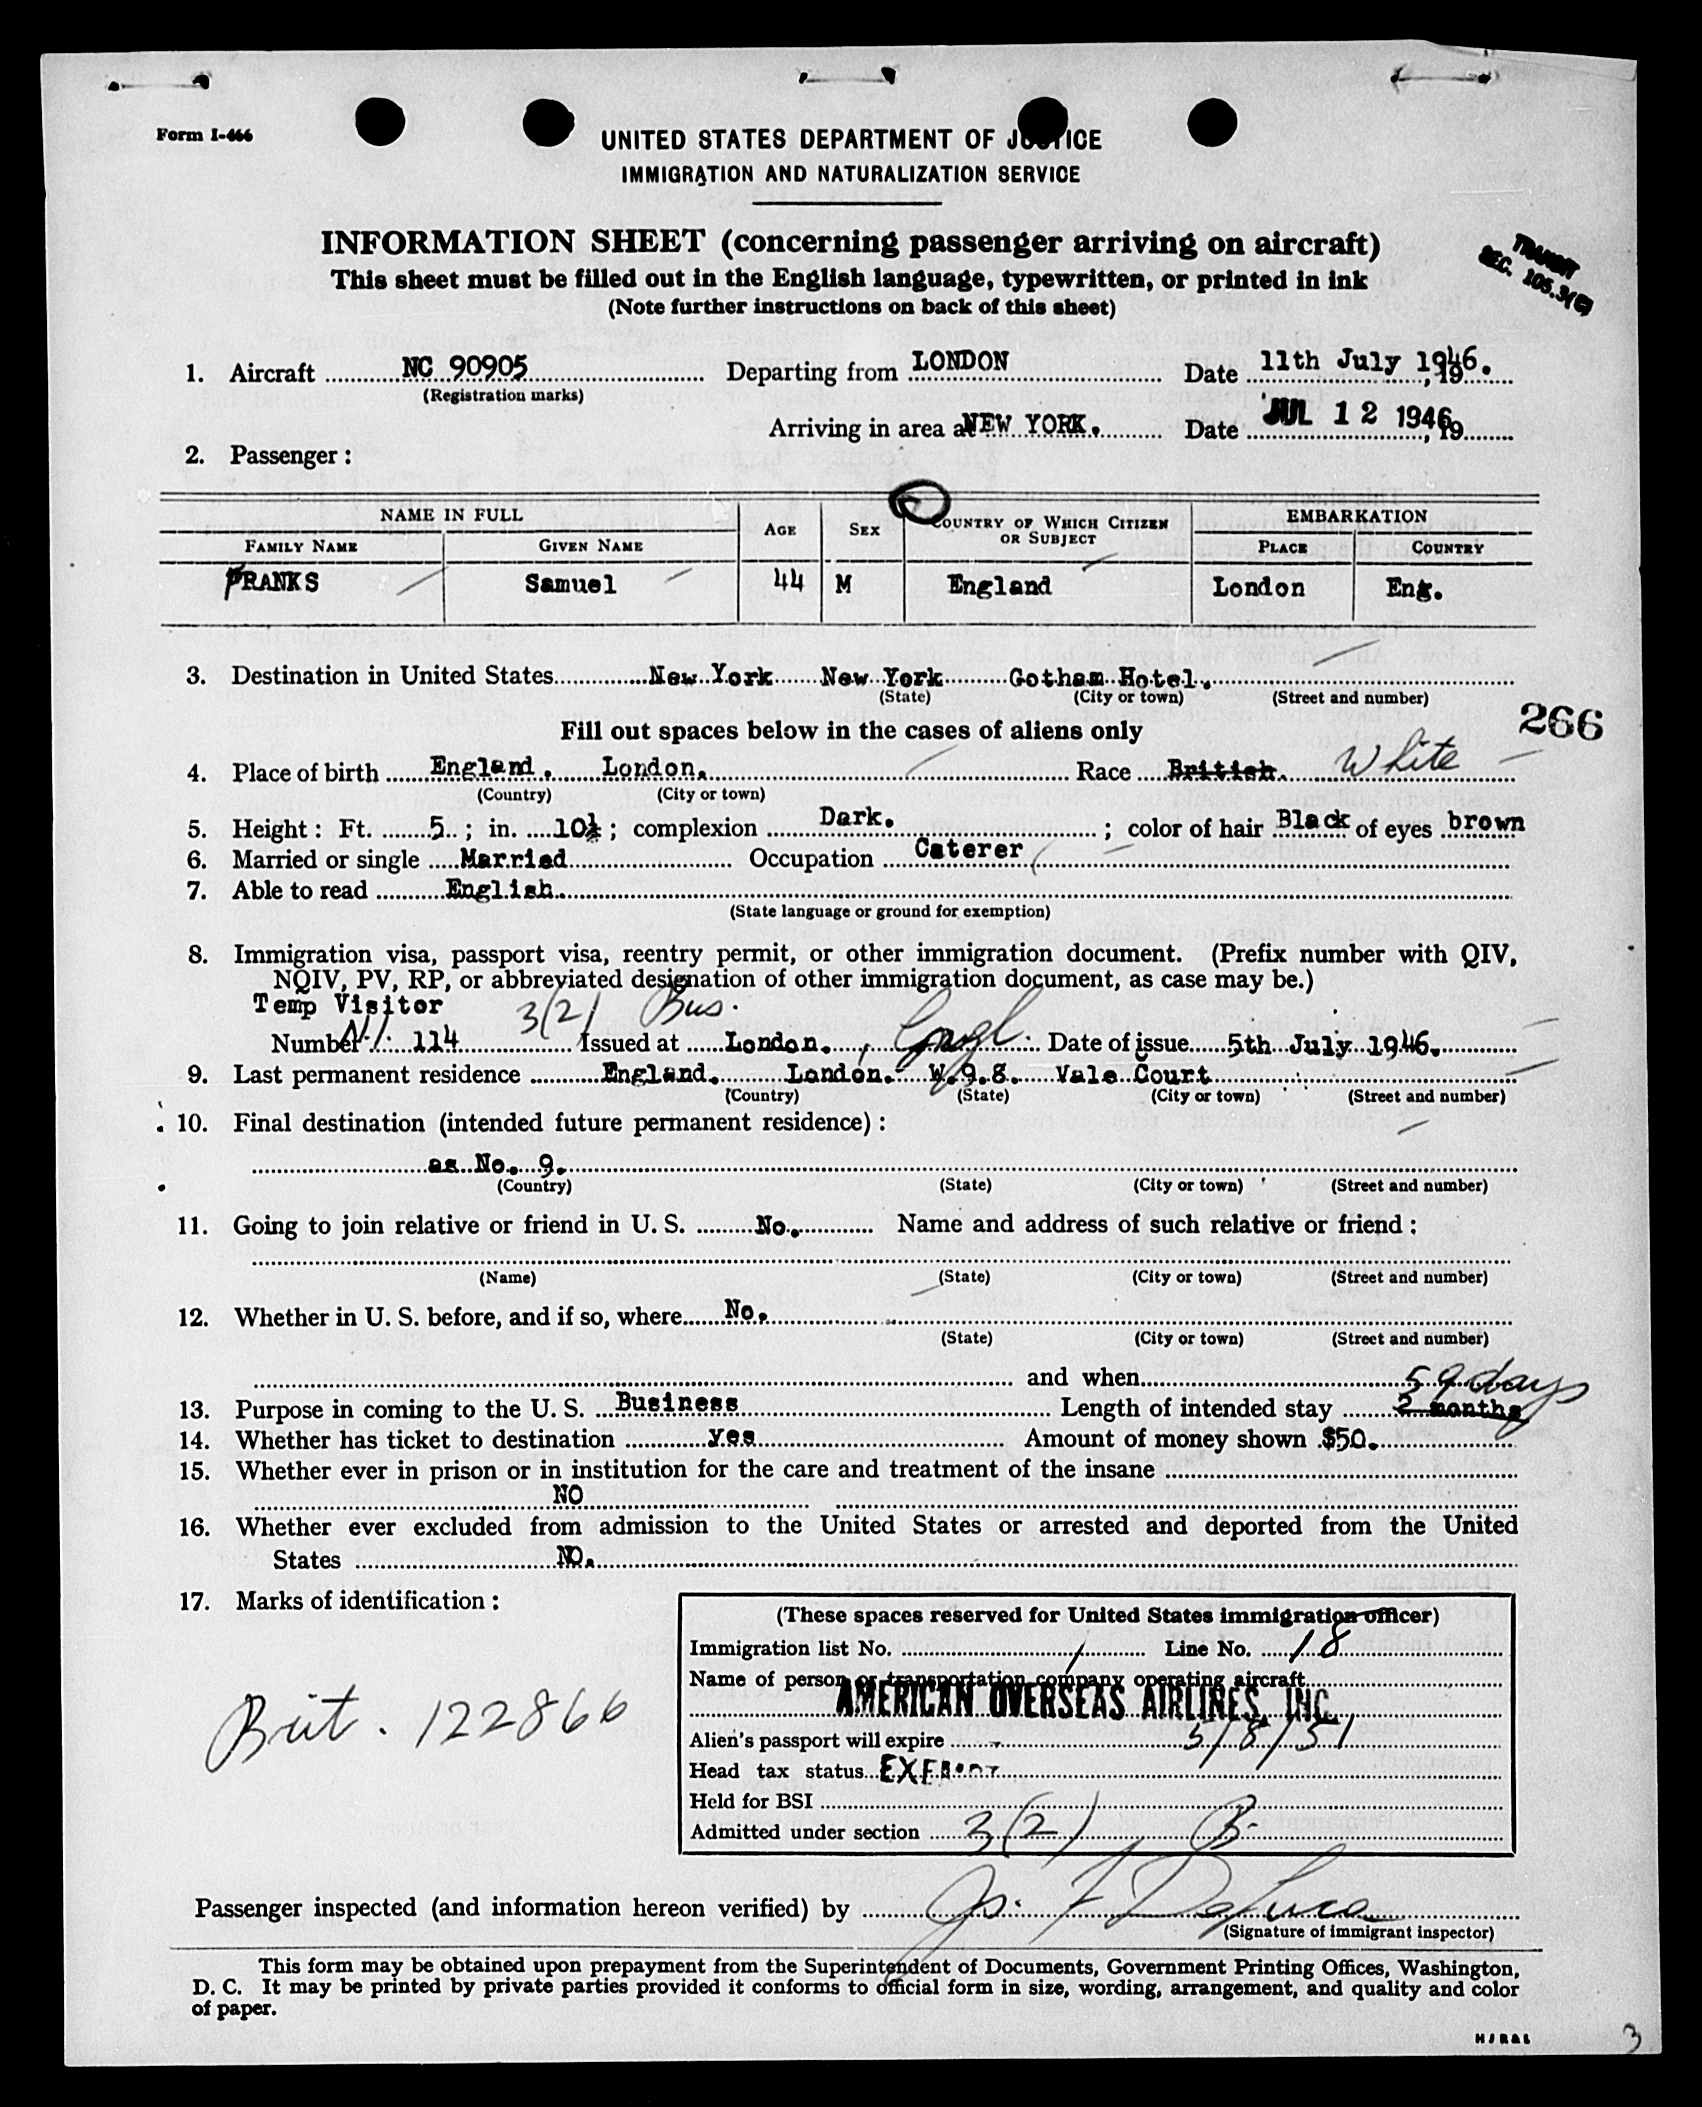 Form I-466
UNITED STATES DEPARTMENT OF JUSTICE
IMMIGRATION AND NATURALIZATION SERVICE
INFORMATION SHEET (concerning passenger arriving on aircraft)
This sheet must be filled out in the English language, typewritten, or printed in ink
(Note further instructions on back of this sheet)
TRANSIT
SEC. 105.3(C)
1. Aircraft NC 90905 Departing from LONDON Date 11th July 1946. , 19
(Registration marks)
Arriving in area at NEW YORK. Date JUL 12 1946 , 19
2. Passenger :
NAME IN FULL AGE SEX COUNTRY OF WHICH CITIZEN OR SUBJECT EMBARKATION
FAMILY NAME GIVEN NAME PLACE COUNTRY
FRANKS Samuel 44 M England London Eng.
3. Destination in United States New York New York Gotham Hotel.
(State) (City or town) (Street and number)
266
Fill out spaces below in the cases of aliens only
4. Place of birth England. London. Race British. White
(Country) (City or town)
5. Height : Ft. 5 ; in. 10½ ; complexion Dark. ; color of hair Black of eyes brown
6. Married or single Married Occupation Caterer
7. Able to read English.
(State language or ground for exemption)
8. Immigration visa, passport visa, reentry permit, or other immigration document. (Prefix number with QIV,
NQIV, PV, RP, or abbreviated designation of other immigration document, as case may be.)
Temp Visitor 3(2) Bus.
Number 114 Issued at London. , Engl. Date of issue 5th July 1946.
9. Last permanent residence England. London. W.9.8. Vale Court
(Country) (State) (City or town) (Street and number)
10. Final destination (intended future permanent residence) :
as No. 9.
(Country) (State) (City or town) (Street and number)
11. Going to join relative or friend in U. S. No. Name and address of such relative or friend :
(Name) (State) (City or town) (Street and number)
12. Whether in U. S. before, and if so, where No.
(State) (City or town) (Street and number)
and when
59 days
13. Purpose in coming to the U. S. Business Length of intended stay 2 months
14. Whether has ticket to destination yes Amount of money shown $50.
15. Whether ever in prison or in institution for the care and treatment of the insane
NO
16. Whether ever excluded from admission to the United States or arrested and deported from the United
States NO.
17. Marks of identification :
Brit. 122866
(These spaces reserved for United States immigration officer)
Immigration list No. 1 Line No. 18
Name of person or transportation company operating aircraft
AMERICAN OVERSEAS AIRLINES, INC.
Alien's passport will expire 5/8/51
Head tax status EXEMPT
Held for BSI
Admitted under section 3(2) B-
Passenger inspected (and information hereon verified) by Js. F DeLuca
(Signature of immigrant inspector)
This form may be obtained upon prepayment from the Superintendent of Documents, Government Printing Offices, Washington,
D. C. It may be printed by private parties provided it conforms to official form in size, wording, arrangement, and quality and color
of paper.
3